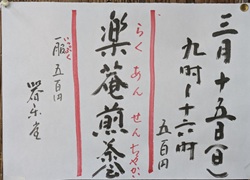 三月十五日(日)
九時〜十六時
五百円
らく あん せんちゃかい
楽菴煎茶会
一服 五百円
いっぷく
器楽堂